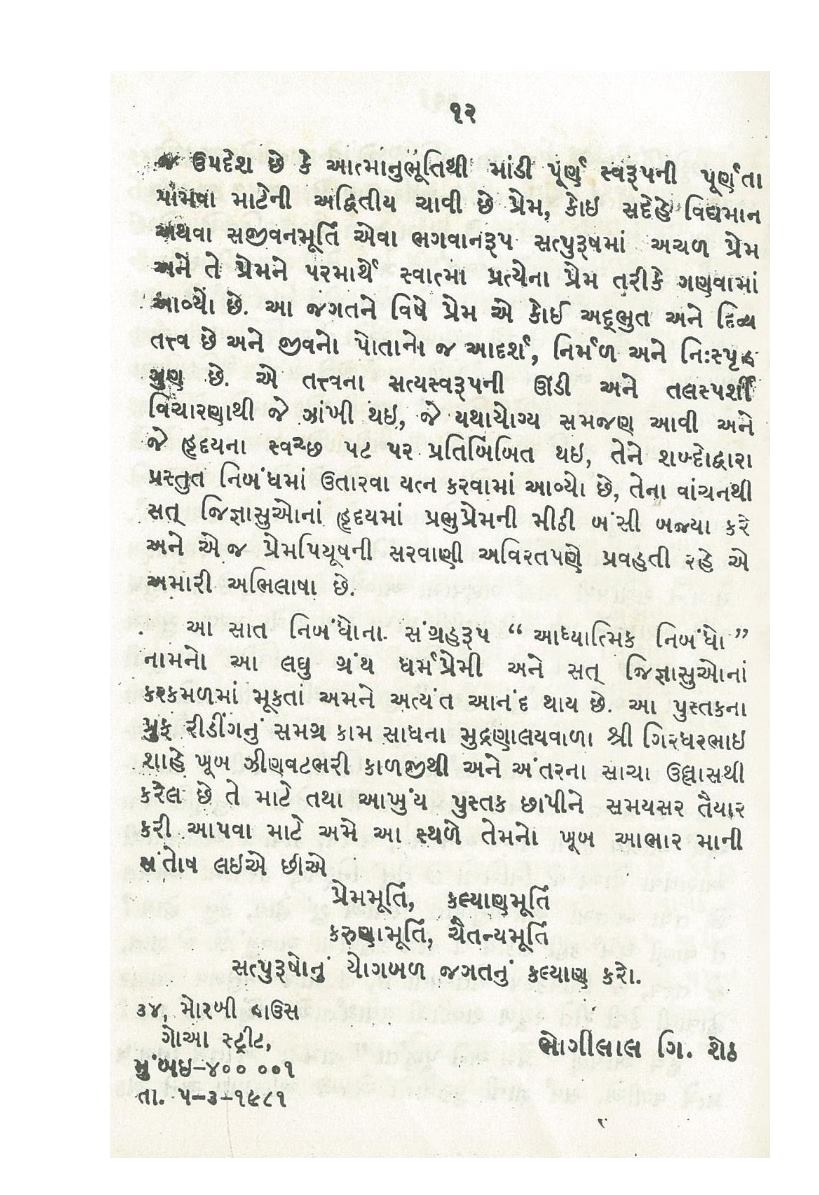 ૧૨
જ ઉપદેશ છે કે આત્માનુભૂતિથી માંડી પૂર્ણ સ્વરૂપની પૂર્ણતા
પામવા માટેની અદ્વિતીય ચાવી છે પ્રેમ, કોઇ સદેહે વિદ્યમાન
અથવા સજીવનમૂર્તિ એવા ભગવાનરૂપ સત્પુરૂષમાં અચળ પ્રેમ
અને તે પ્રેમને પરમાર્થે સ્વાત્મા પ્રત્યેના પ્રેમ તરીકે ગણવામાં
આવ્યો છે. આ જગતને વિષે પ્રેમ એ કોઈ અદ્ભુત અને દિવ્ય
તત્ત્વ છે અને જીવનો પોતાનો જ આદર્શ, નિર્મળ અને નિઃસ્પૃહ
ગુણ છે. એ તત્ત્વના સત્યસ્વરૂપની ઊંડી અને તલસ્પર્શી
વિચારણાથી જે ઝાંખી થઇ, જે યથાયોગ્ય સમજણ આવી અને
જે હૃદયના સ્વચ્છ પટ પર પ્રતિબિંબિત થઇ, તેને શબ્દોદ્વારા
પ્રસ્તુત નિબંધમાં ઉતારવા યત્ન કરવામાં આવ્યો છે, તેના વાંચનથી
સત્ જિજ્ઞાસુઓનાં હૃદયમાં પ્રભુપ્રેમની મીઠી બંસી બજ્યા કરે
અને એ જ પ્રેમપિયૂષની સરવાણી અવિરતપણે પ્રવહતી રહે એ
અમારી અભિલાષા છે.
આ સાત નિબંધોના સંગ્રહરૂપ “ આધ્યાત્મિક નિબંધો ”
નામનો આ લઘુ ગ્રંથ ધર્મપ્રેમી અને સત્ જિજ્ઞાસુઓનાં
કરકમળમાં મૂકતાં અમને અત્યંત આનંદ થાય છે. આ પુસ્તકના
પ્રુફ રીડીંગનું સમગ્ર કામ સાધના મુદ્રણાલયવાળા શ્રી ગિરધરભાઇ
શાહે ખૂબ ઝીણવટભરી કાળજીથી અને અંતરના સાચા ઉલ્લાસથી
કરેલ છે તે માટે તથા આખુંય પુસ્તક છાપીને સમયસર તૈયાર
કરી આપવા માટે અમે આ સ્થળે તેમનો ખૂબ આભાર માની
સંતોષ લઇએ છીએ
પ્રેમમૂર્તિ, કલ્યાણમૂર્તિ
કરુણામૂર્તિ, ચૈતન્યમૂર્તિ
સત્પુરૂષોનું યોગબળ જગતનું કલ્યાણ કરો.
૩૪, મોરબી હાઉસ
ગોઆ સ્ટ્રીટ,
મુંબઇ-૪૦૦ ૦૦૧
તા. ૫-૩-૧૯૮૧
ભોગીલાલ ગિ. શેઠ